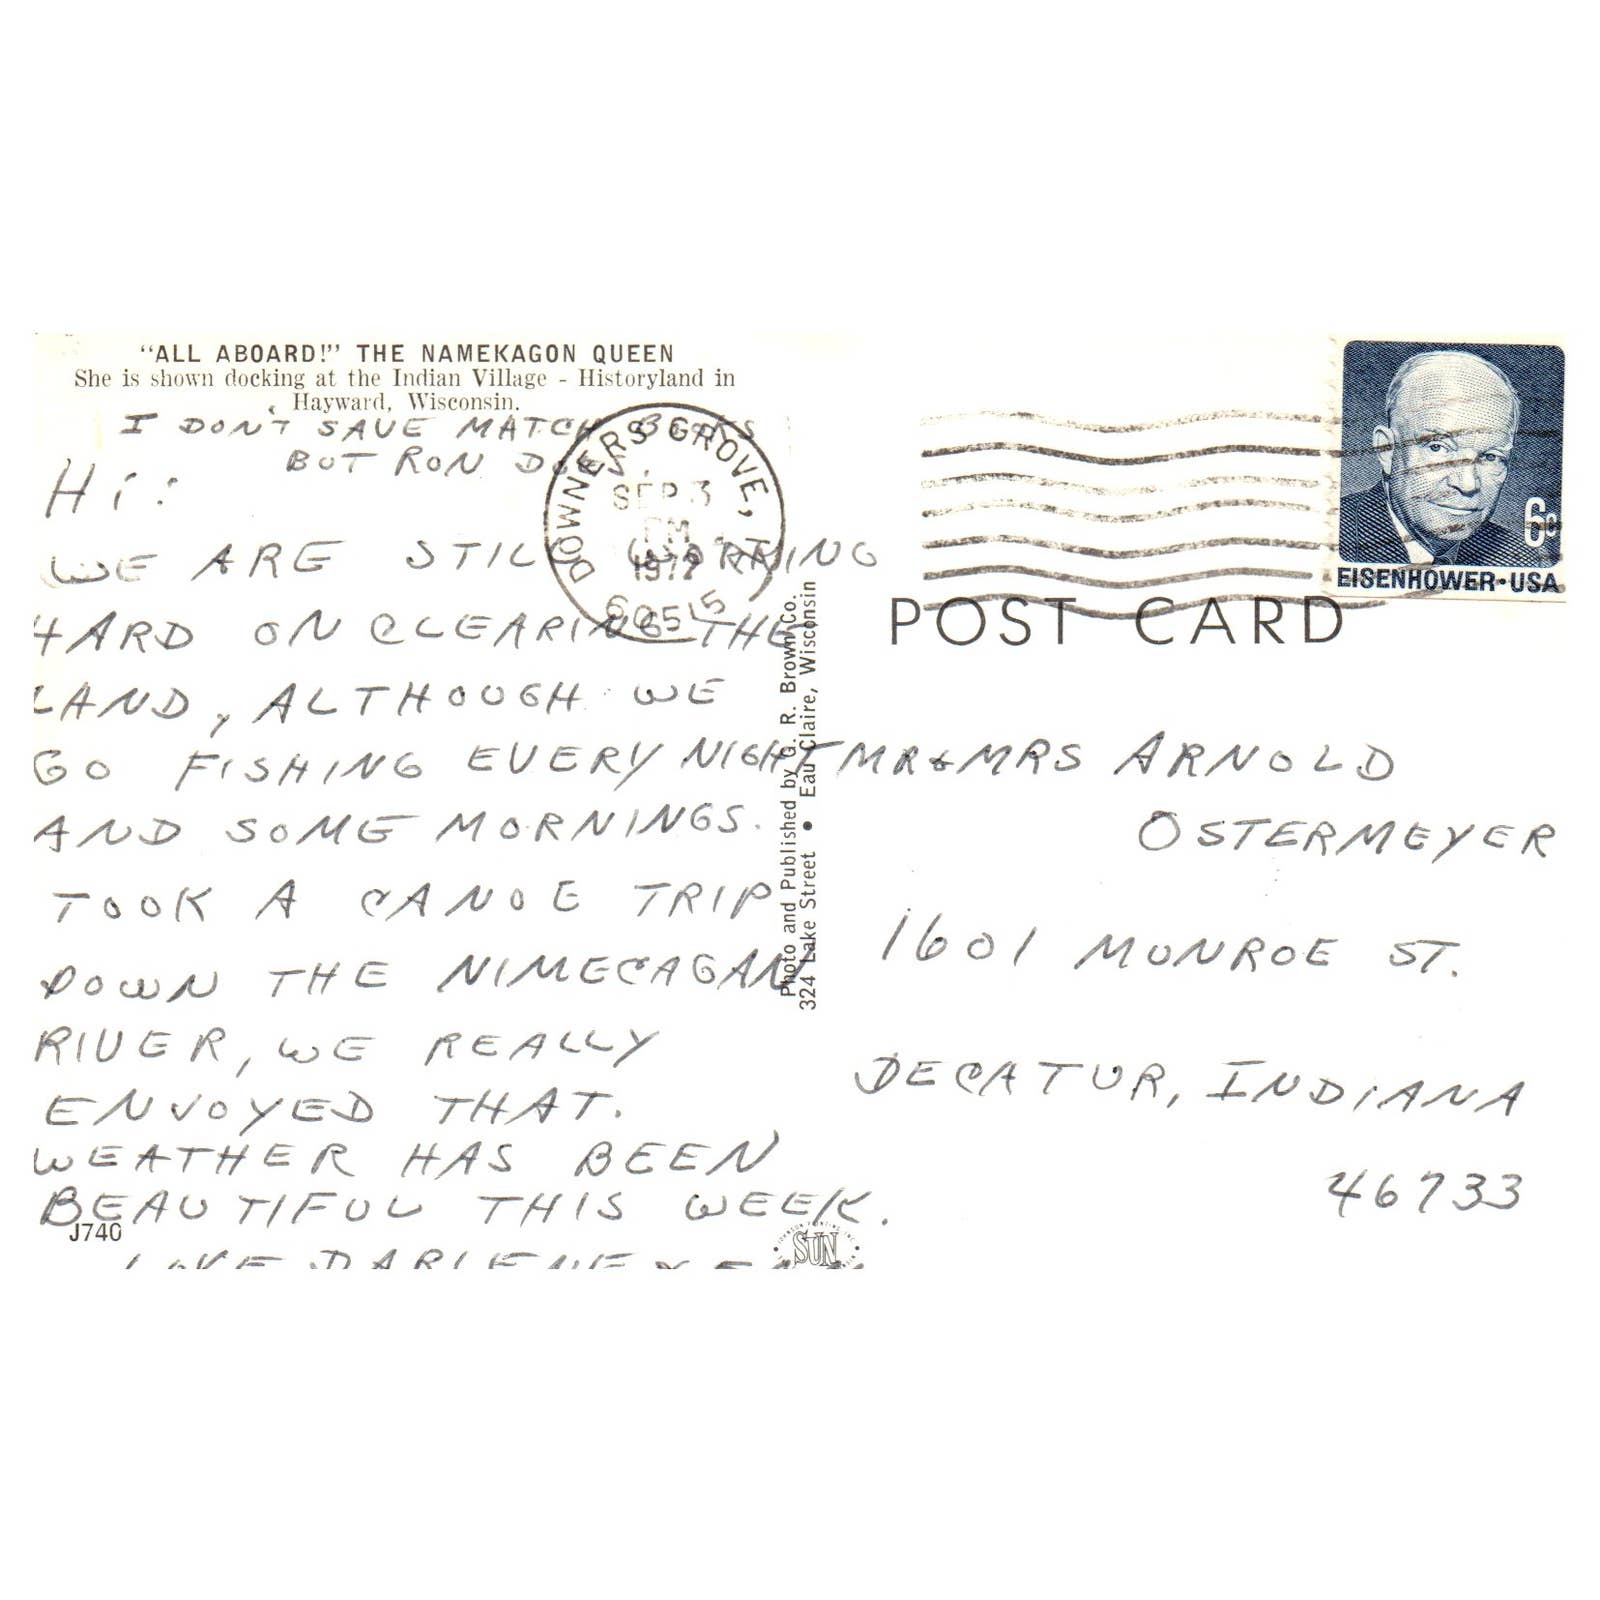 "ALL ABOARD!" THE NAMEKAGON QUEEN
She is shown docking at the Indian Village - Historyland in
Hayward, Wisconsin.
I DON'T SAVE MATCH BOOKS
BUT RON DOES.
Hi:
WE ARE STILL WORKING
HARD ON CLEARING THE
LAND, ALTHOUGH WE
GO FISHING EVERY NIGHT
AND SOME MORNINGS.
TOOK A CANOE TRIP
DOWN THE NIMECAGAN
RIVER, WE REALLY
ENVOYED THAT.
WEATHER HAS BEEN
BEAUTIFUL THIS WEEK.
LOVE DARLENE
J740
DOWNERS GROVE,
SEP 3
PM
1972
60515
Photo and Published by G. R. Brown Co.
324 Lake Street • Eau Claire, Wisconsin
SUN
6c
EISENHOWER·USA
POST CARD
MR & MRS ARNOLD
OSTERMEYER
1601 MONROE ST.
DECATUR, INDIANA
46733